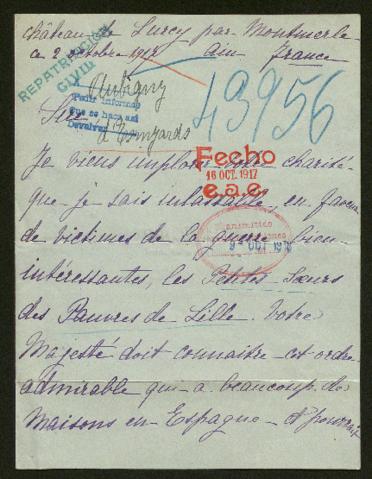 château de Lurcy par Montmerle
ce 2 octobre 1917 Ain France
REPATRIACION
CIVIL
A Aubigny
Pedir informes
Que se haga así
Devolver
43956
Sire
Fecho
16 OCT. 1917
e.s.e.
Je viens implorer votre charité
que je sais inlassable, en faveur
9 OCT 19
de victimes de la guerre bien
intéressantes, les Petites Sœurs
des Pauvres de Lille. Votre
Majesté doit connaître cet ordre
admirable qui a beaucoup de
maisons en Espagne et pourrait